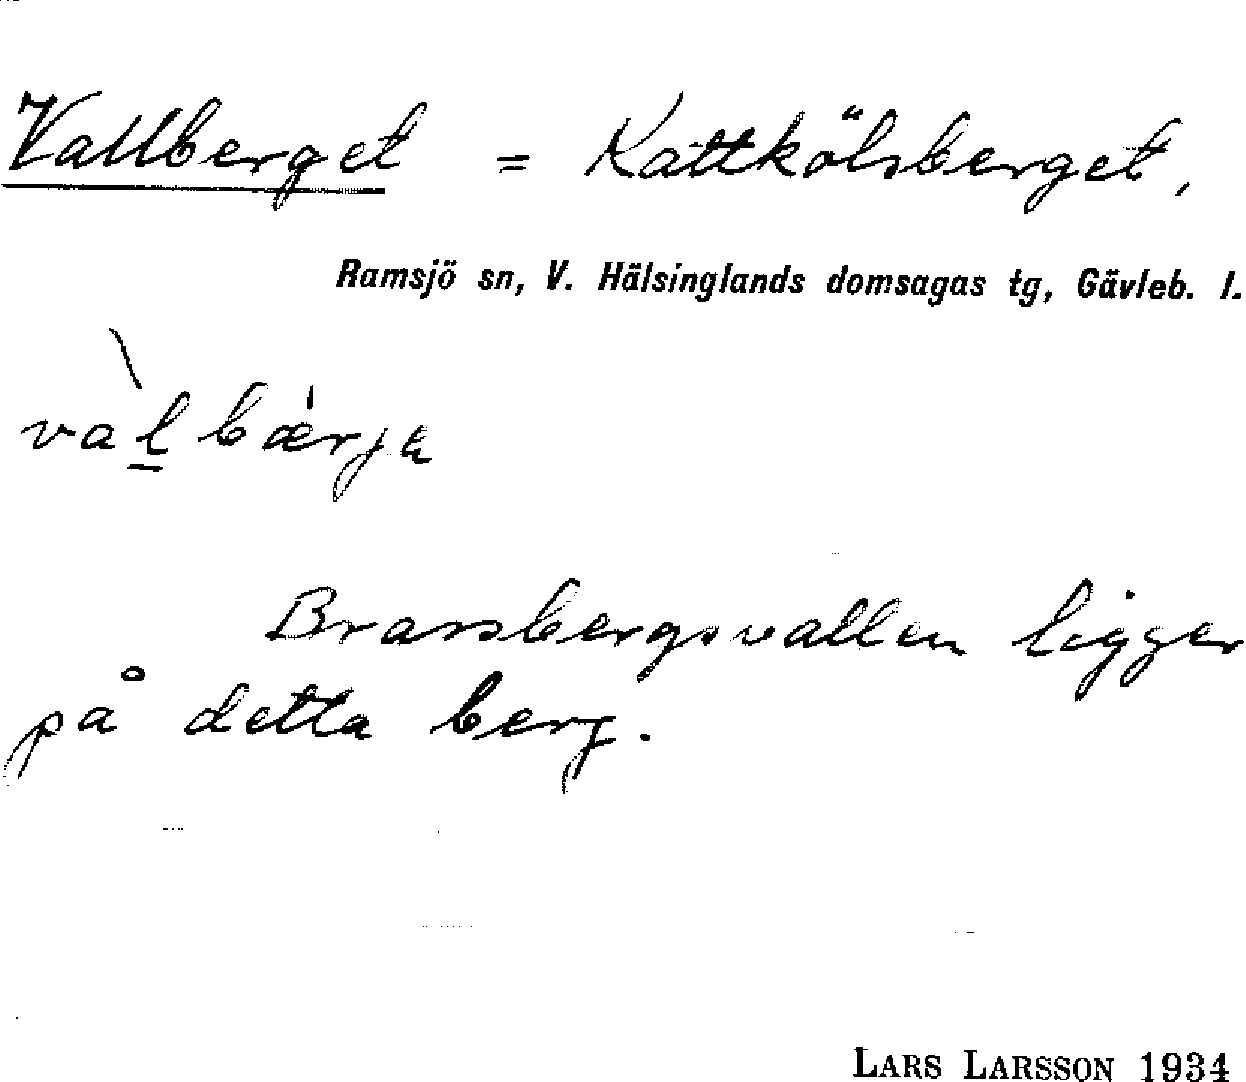 Vallberget = Kattkölsberget,
Ramsjö sn, V. Hälsinglands domsagas tg, Gävleb. l.
vàl̲bæ̀rja
Brassbergsvallen ligger
på detta berg.
LARS LARSSON 1934